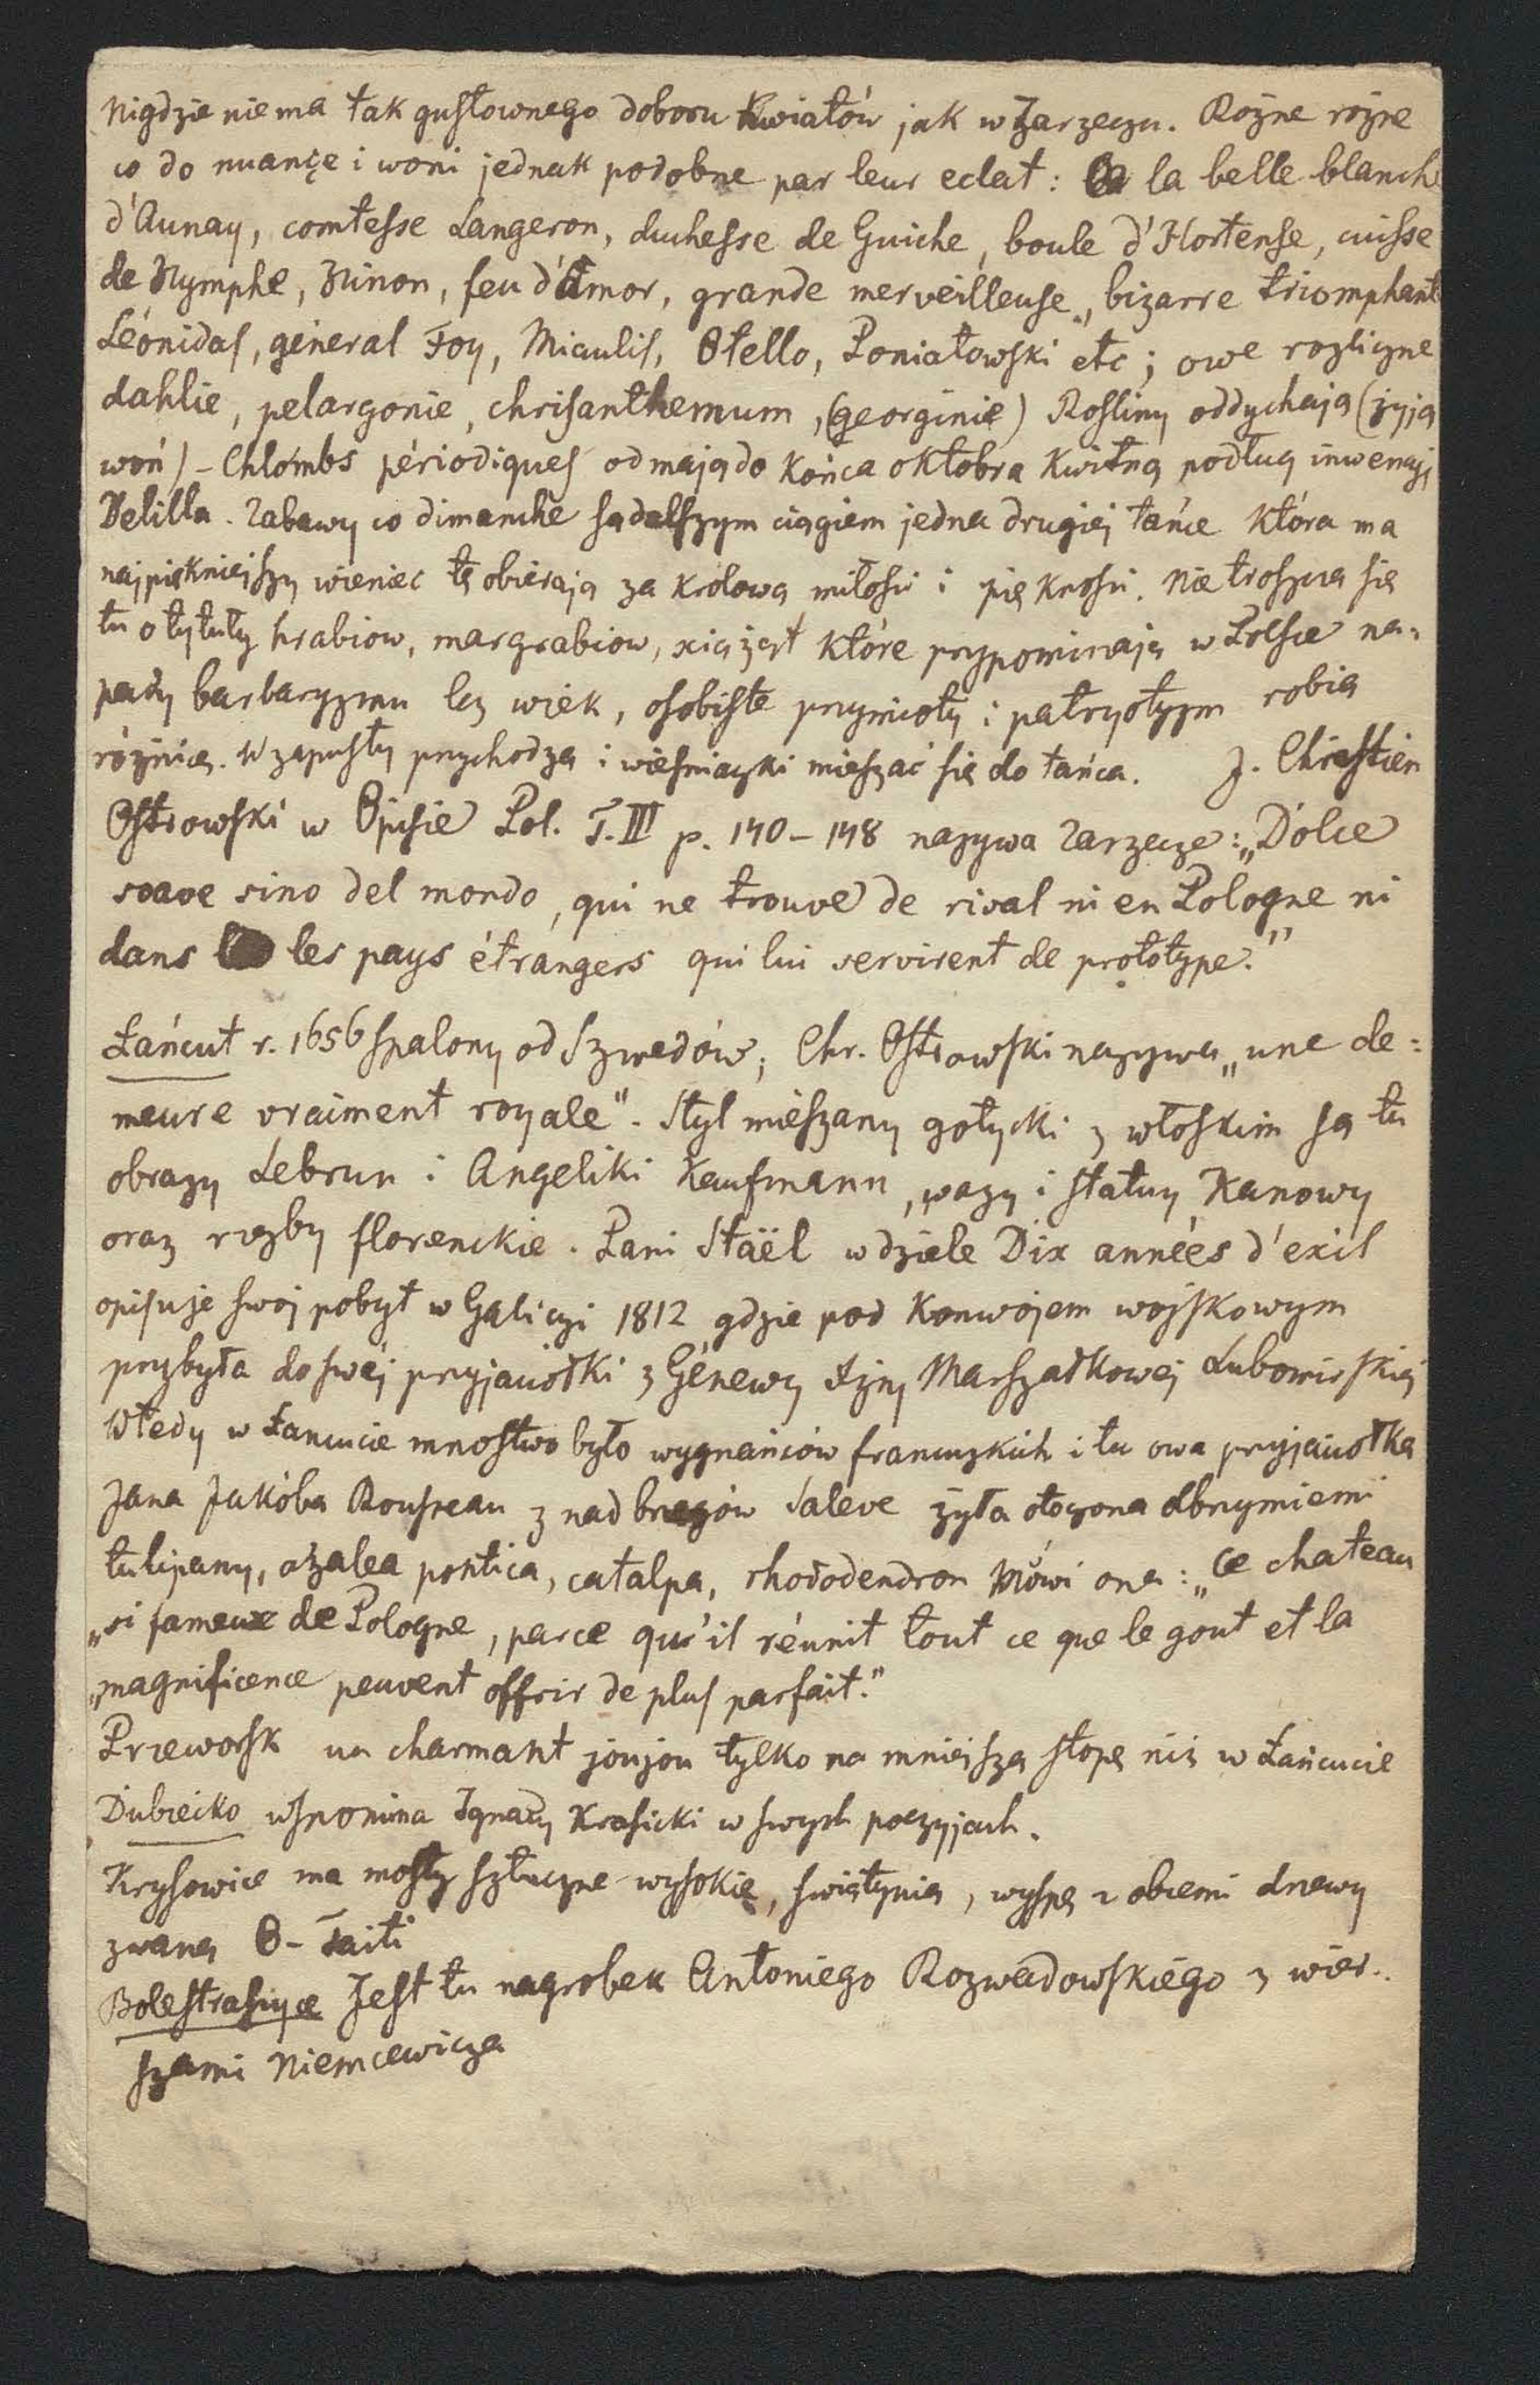 Nigdzie niema tak gustownego doboru kwiatów jak w Zarzeczu. Rożne rożne
co do nuançe i woni jednak podobne par leur eclat: la belle blanch
d'Aunay, comtesse Langeron, duchesse de Guiche, boule d'Hortense, cuisse
de Nymphe, Ninon, feu d'Amor, grande merveilleuse, bizarre triomphant
Léonidas, géneral Foy, Miaulis, Otello, Poniatowski etc; owe rozliczne
dahlie, pelargonie, chrisanthemum, (georginie) Rosliny oddychają (żyją
woń) - Chlombs périodiques od maja do końca oktobra kwitną podług inwencyi
Delilla. Zabawy co dimanche są dalszym ciągiem jedna drugiej tańce która ma
najpiękniejszy wieniec tę obierają za krolowa miłości i piękności. Nie troszcza się
tu o tytuły hrabiow, margrabiow, xiążąt które przypominają w Polsce na-
pady barbaryzmu lez wiek, osobiste przymioty i patryotyzm robią
różnicę. W zapusty przychodzą i wieśniaczki mieszać się do tańca. J. Chrestien
Ostrowski w Opisie Pol. T. III p. 140-148 nazywa Zarzecze: „Dolce
soave sino del mondo, qui ne trouve de rival ni en Pologne ni
dans les pays étrangers qui lui servirent de prototype."
Łańcut r. 1656 spalony od Szwedów; Chr. Ostrowski nazywa „une de=
meure vraiment royale". Styl mieszany gotycki z włoskim są tu
obrazy Lebrun i Angeliki Kaufmann, wazy i statuy Kanowy
oraz rzezby florenckie. Pani Staël w dziele Dix années d'exil
opisuje swoj pobyt w Galicyi 1812 gdzie pod konwojem wojskowym
przybyła do swej przyjaciołki z Génewy Marszałkowej Lubomirskiej
Wtedy w Łancucie mnostwo było wygnańców francuzkich i tu owa przyjaciołka
Jana Jakóba Rousseau z nad brzegów Saleve żyła otoczona olbrzymiemi
tulipany, azalea pontica, catalpa, rhododendron Mówi ona: „Ce chateau
„si fameux de Pologne, parce qu'il réunit tout ce que le gout et la
„magnificence peuvent offrir de plus parfait."
Przeworsk un charmant joujou tylko na mniejszą stopę niż w Łańcucie
Dubiecko wspomina Ignacy Krasicki w swych poezyjach.
Krysowice ma mosty sztuczne wysokie, świątynię, wyspę z obcemi drzewy
zwaną O-Taiti
Bolestraszyce Jest tu nagrobek Antoniego Rozwadowskiego z wier-
szami Niemcewicza